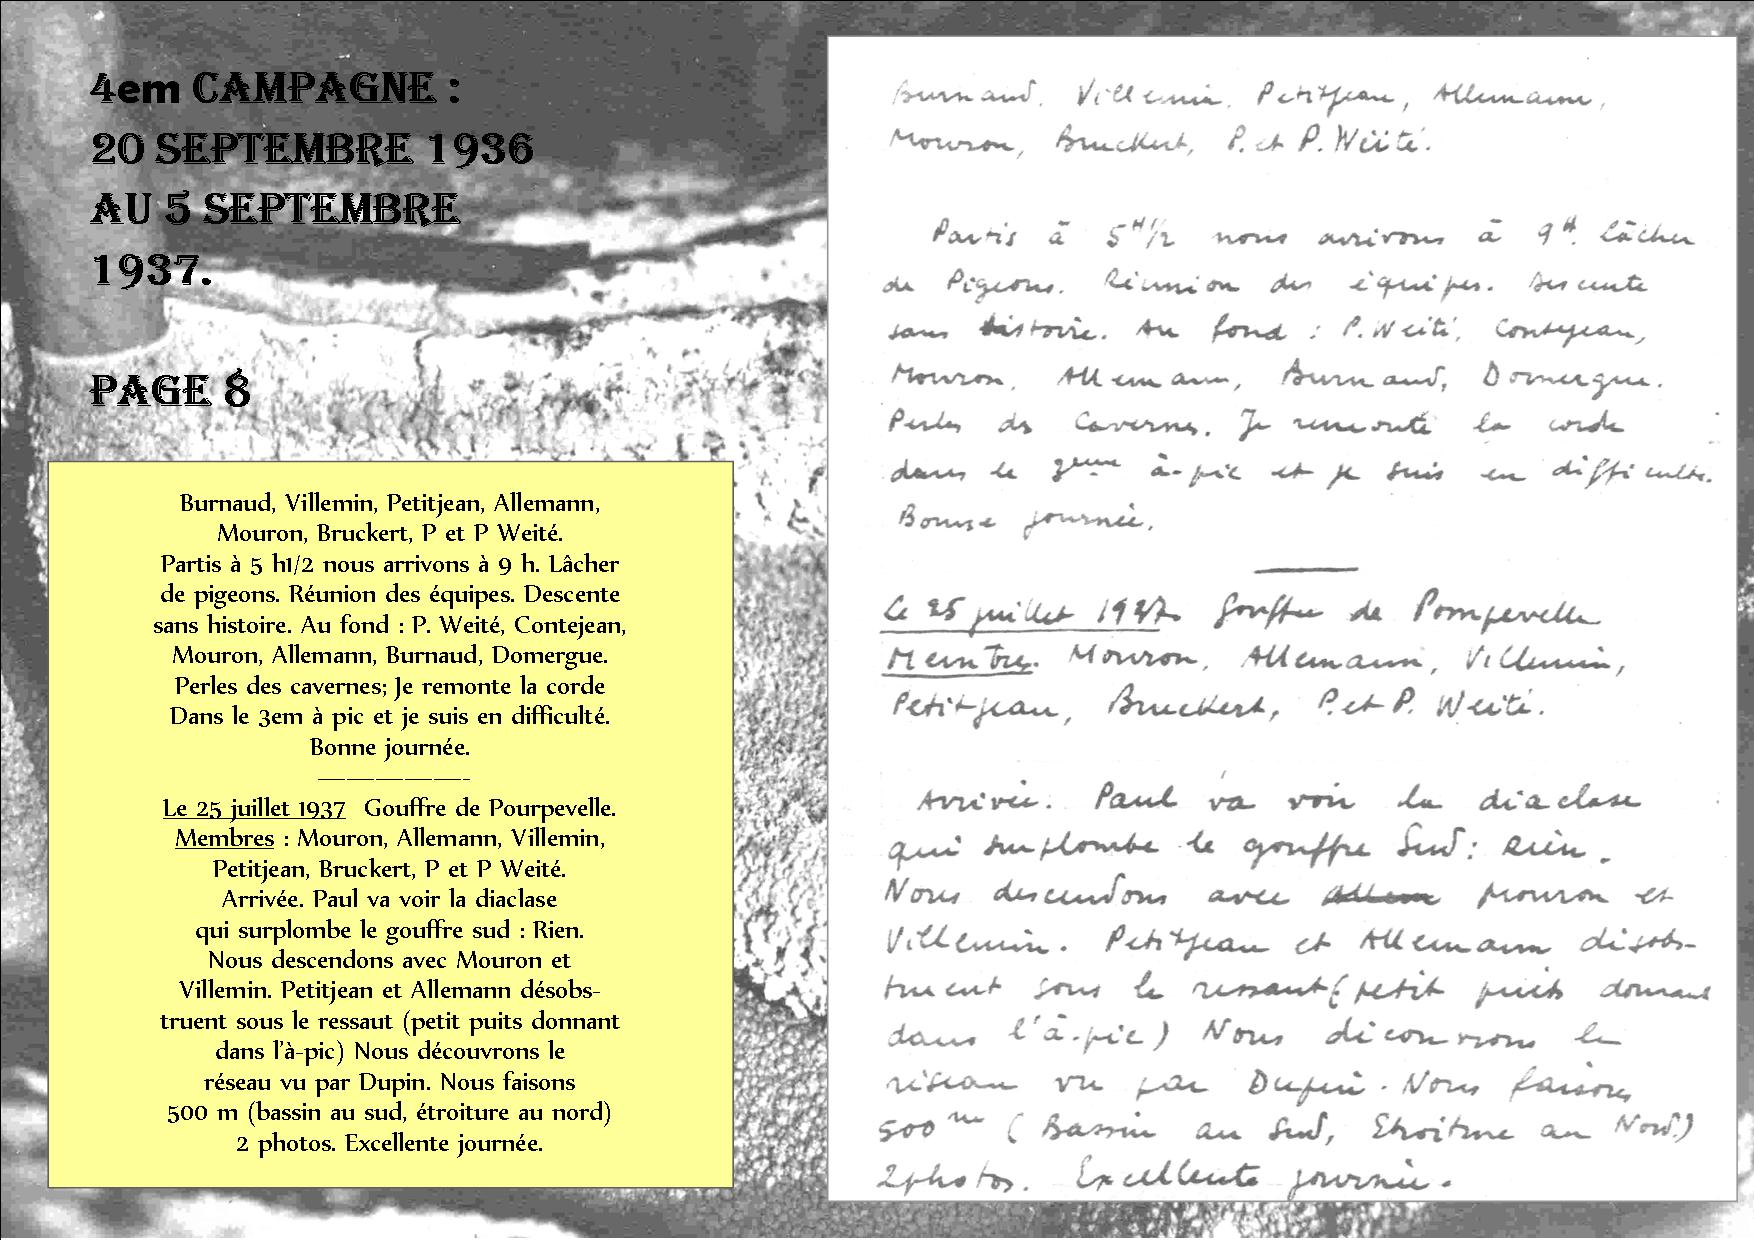 4em CAMPAGNE :
20 SEPTEMBRE 1936
AU 5 SEPTEMBRE
1937.
PAGE 8
Burnaud, Villemin, Petitjean, Allemann,
Mouron, Bruckert, P et P Weité.
Partis à 5 h1/2 nous arrivons à 9 h. Lâcher
de pigeons. Réunion des équipes. Descente
sans histoire. Au fond : P. Weité, Contejean,
Mouron, Allemann, Burnaud, Domergue.
Perles des cavernes; Je remonte la corde
Dans le 3em à pic et je suis en difficulté.
Bonne journée.
——————————-
Le 25 juillet 1937 Gouffre de Pourpevelle.
Membres : Mouron, Allemann, Villemin,
Petitjean, Bruckert, P et P Weité.
Arrivée. Paul va voir la diaclase
qui surplombe le gouffre sud : Rien.
Nous descendons avec Mouron et
Villemin. Petitjean et Allemann désobs-
truent sous le ressaut (petit puits donnant
dans l'à-pic) Nous découvrons le
réseau vu par Dupin. Nous faisons
500 m (bassin au sud, étroiture au nord)
2 photos. Excellente journée.
Burnaud, Villemin, Petitjean, Allemann,
Mouron, Bruckert, P. et P. Weité.
Partis à 5 H 1/2 nous arrivons à 9 H. Lâcher
de Pigeons. Réunion des équipes. Descente
sans histoire. Au fond : P. Weité, Contejean,
Mouron, Allemann, Burnaud, Domergue.
Perles des Cavernes. Je remonte la corde
dans le 3eme à-pic et je suis en difficulté.
Bonne journée.
Le 25 juillet 1937 Gouffre de Pompevelle
Membres. Mouron, Allemann, Villemin,
Petitjean, Bruckert, P. et P. Weité.
Arrivée. Paul va voir la diaclase
qui surplombe le gouffre Sud : Rien.
Nous descendons avec Mouron et
Villemin. Petitjean et Allemann désobs-
truent sous le ressaut (petit puits donnant
dans l'à-pic) Nous découvrons le
réseau vu par Dupin. Nous faisons
500 m (Bassin au Sud, Etroiture au Nord)
2 photos. Excellente journée.